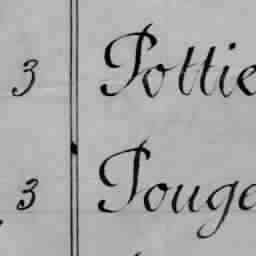 3 Pottie
3 Pouge